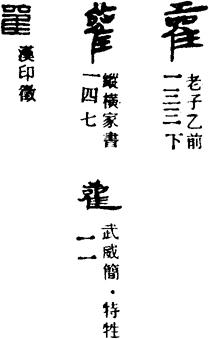 老子乙前
一三三下
縱橫家書
一四七
武威簡・特牲
一一
漢印徵